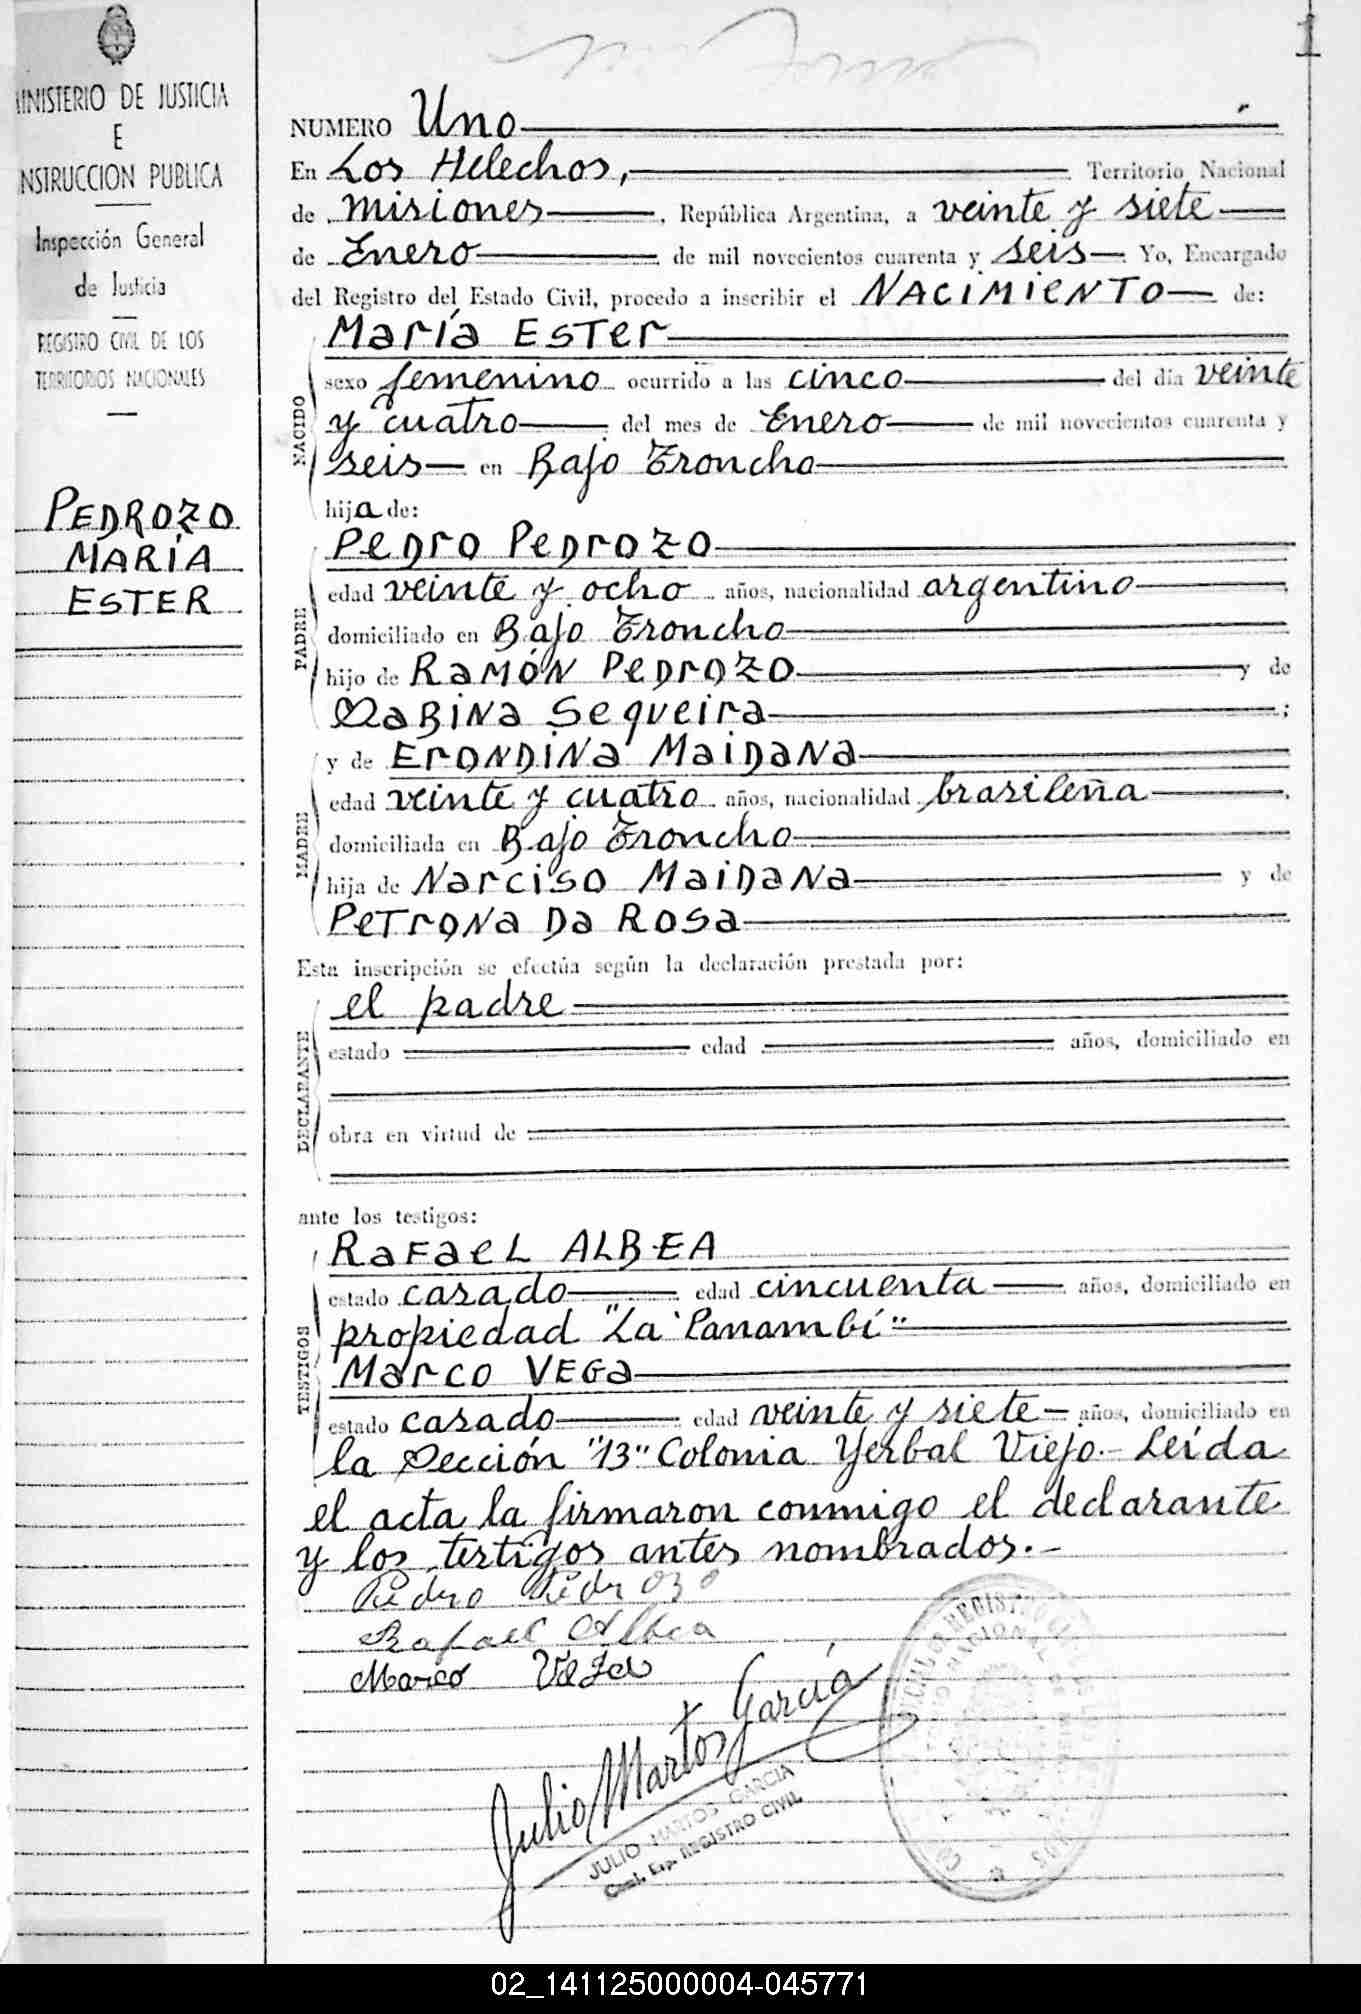 1
MINISTERIO DE JUSTICIA
E
INSTRUCCION PUBLICA
Inspección General
de Justicia
REGISTRO CIVIL DE LOS
TERRITORIOS NACIONALES
PEDROZO
MARÍA
ESTER
NUMERO Uno
En Los Helechos, Territorio Nacional
de Misiones, República Argentina, a veinte y siete
de Enero de mil novecientos cuarenta y seis Yo, Encargado
del Registro del Estado Civil, procedo a inscribir el NACIMIENTO de:
NACIDO
María Ester
sexo femenino ocurrido a las cinco del día veinte
y cuatro del mes de Enero de mil novecientos cuarenta y
seis en Bajo Troncho
hija de:
PADRE
Pedro Pedrozo
edad veinte y ocho años, nacionalidad argentino
domiciliado en Bajo Troncho
hijo de Ramón Pedrozo y de
Mabina Sequeira;
MADRE
y de Erondina Maidana
edad veinte y cuatro años, nacionalidad brasileña
domiciliada en Bajo Troncho
hija de Narciso Maidana y de
Petrona Da Rosa
Esta inscripción se efectúa según la declaración prestada por:
DECLARANTE
el padre
estado edad años, domiciliado en
obra en virtud de
ante los testigos:
TESTIGOS
Rafael ALBEA
estado casado edad cincuenta años, domiciliado en
propiedad "La Panambí"
Marco VEGA
estado casado edad veinte y siete años, domiciliado en
la Sección "13" Colonia Yerbal Viejo.- Leída
el acta la firmaron conmigo el declarante
y los testigos antes nombrados.-
Pedro Pedrozo
Rafael Albea
Marco Vega
Julio Martos García
JULIO MARTOS GARCIA
REGISTRO CIVIL
02_141125000004-045771